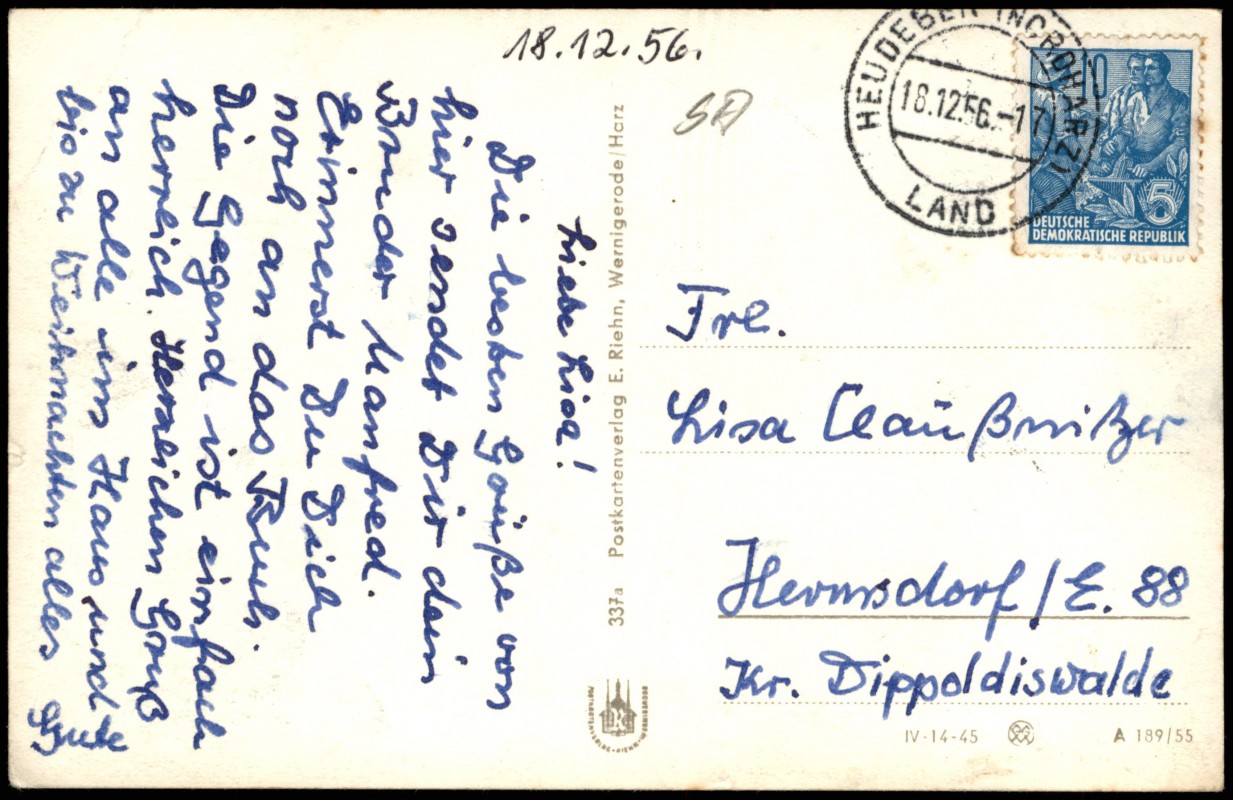 18.12.56.
Liebe Lisa!
Die besten Grüße von
hier sendet Dir dein
Bruder Manfred.
Erinnerst Du Dich
noch an das
Die Gegend ist einfach
herrlich. Herzlichen Gruß
an alle im Haus und
bis zu Weihnachten alles
Gute
337a Postkartenverlag E. Riehn, Wernigerode/Harz
HEUDEBER (NORDHARZ)
18.12.56.-17
LAND
10
5
DEUTSCHE
DEMOKRATISCHE REPUBLIK
Frl.
Lisa Claußnitzer
Hermsdorf/E. 88
Kr. Dippoldiswalde
IV-14-45 A 189/55